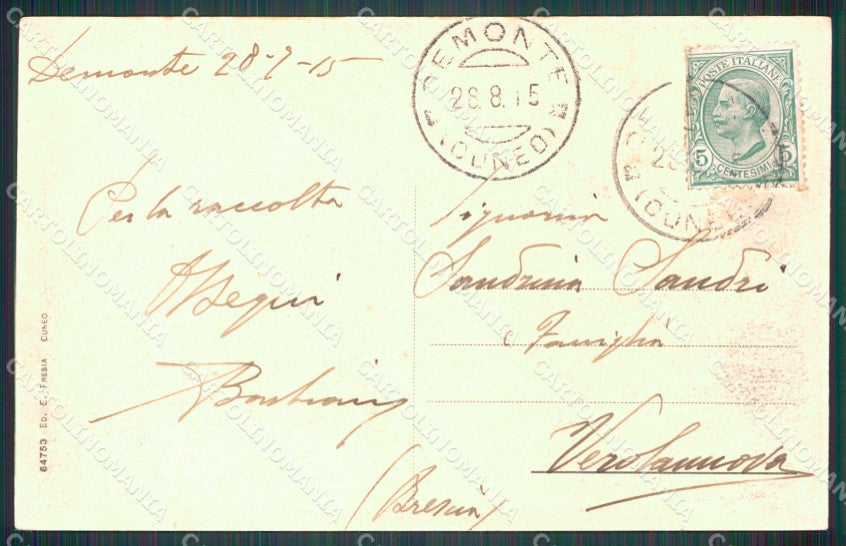 Demonte 28-7-15
DEMONTE
28.8.15
(CUNEO)
POSTE ITALIANE
5 CENTESIMI 5
(CUNEO)
Per la raccolta
Ossequi
Signorina
Sandrina Sandri
e Famiglia
Verolanuova
(Brescia)
64753 ED. E. FRESIA CUNEO
CARTOLINOMANIA